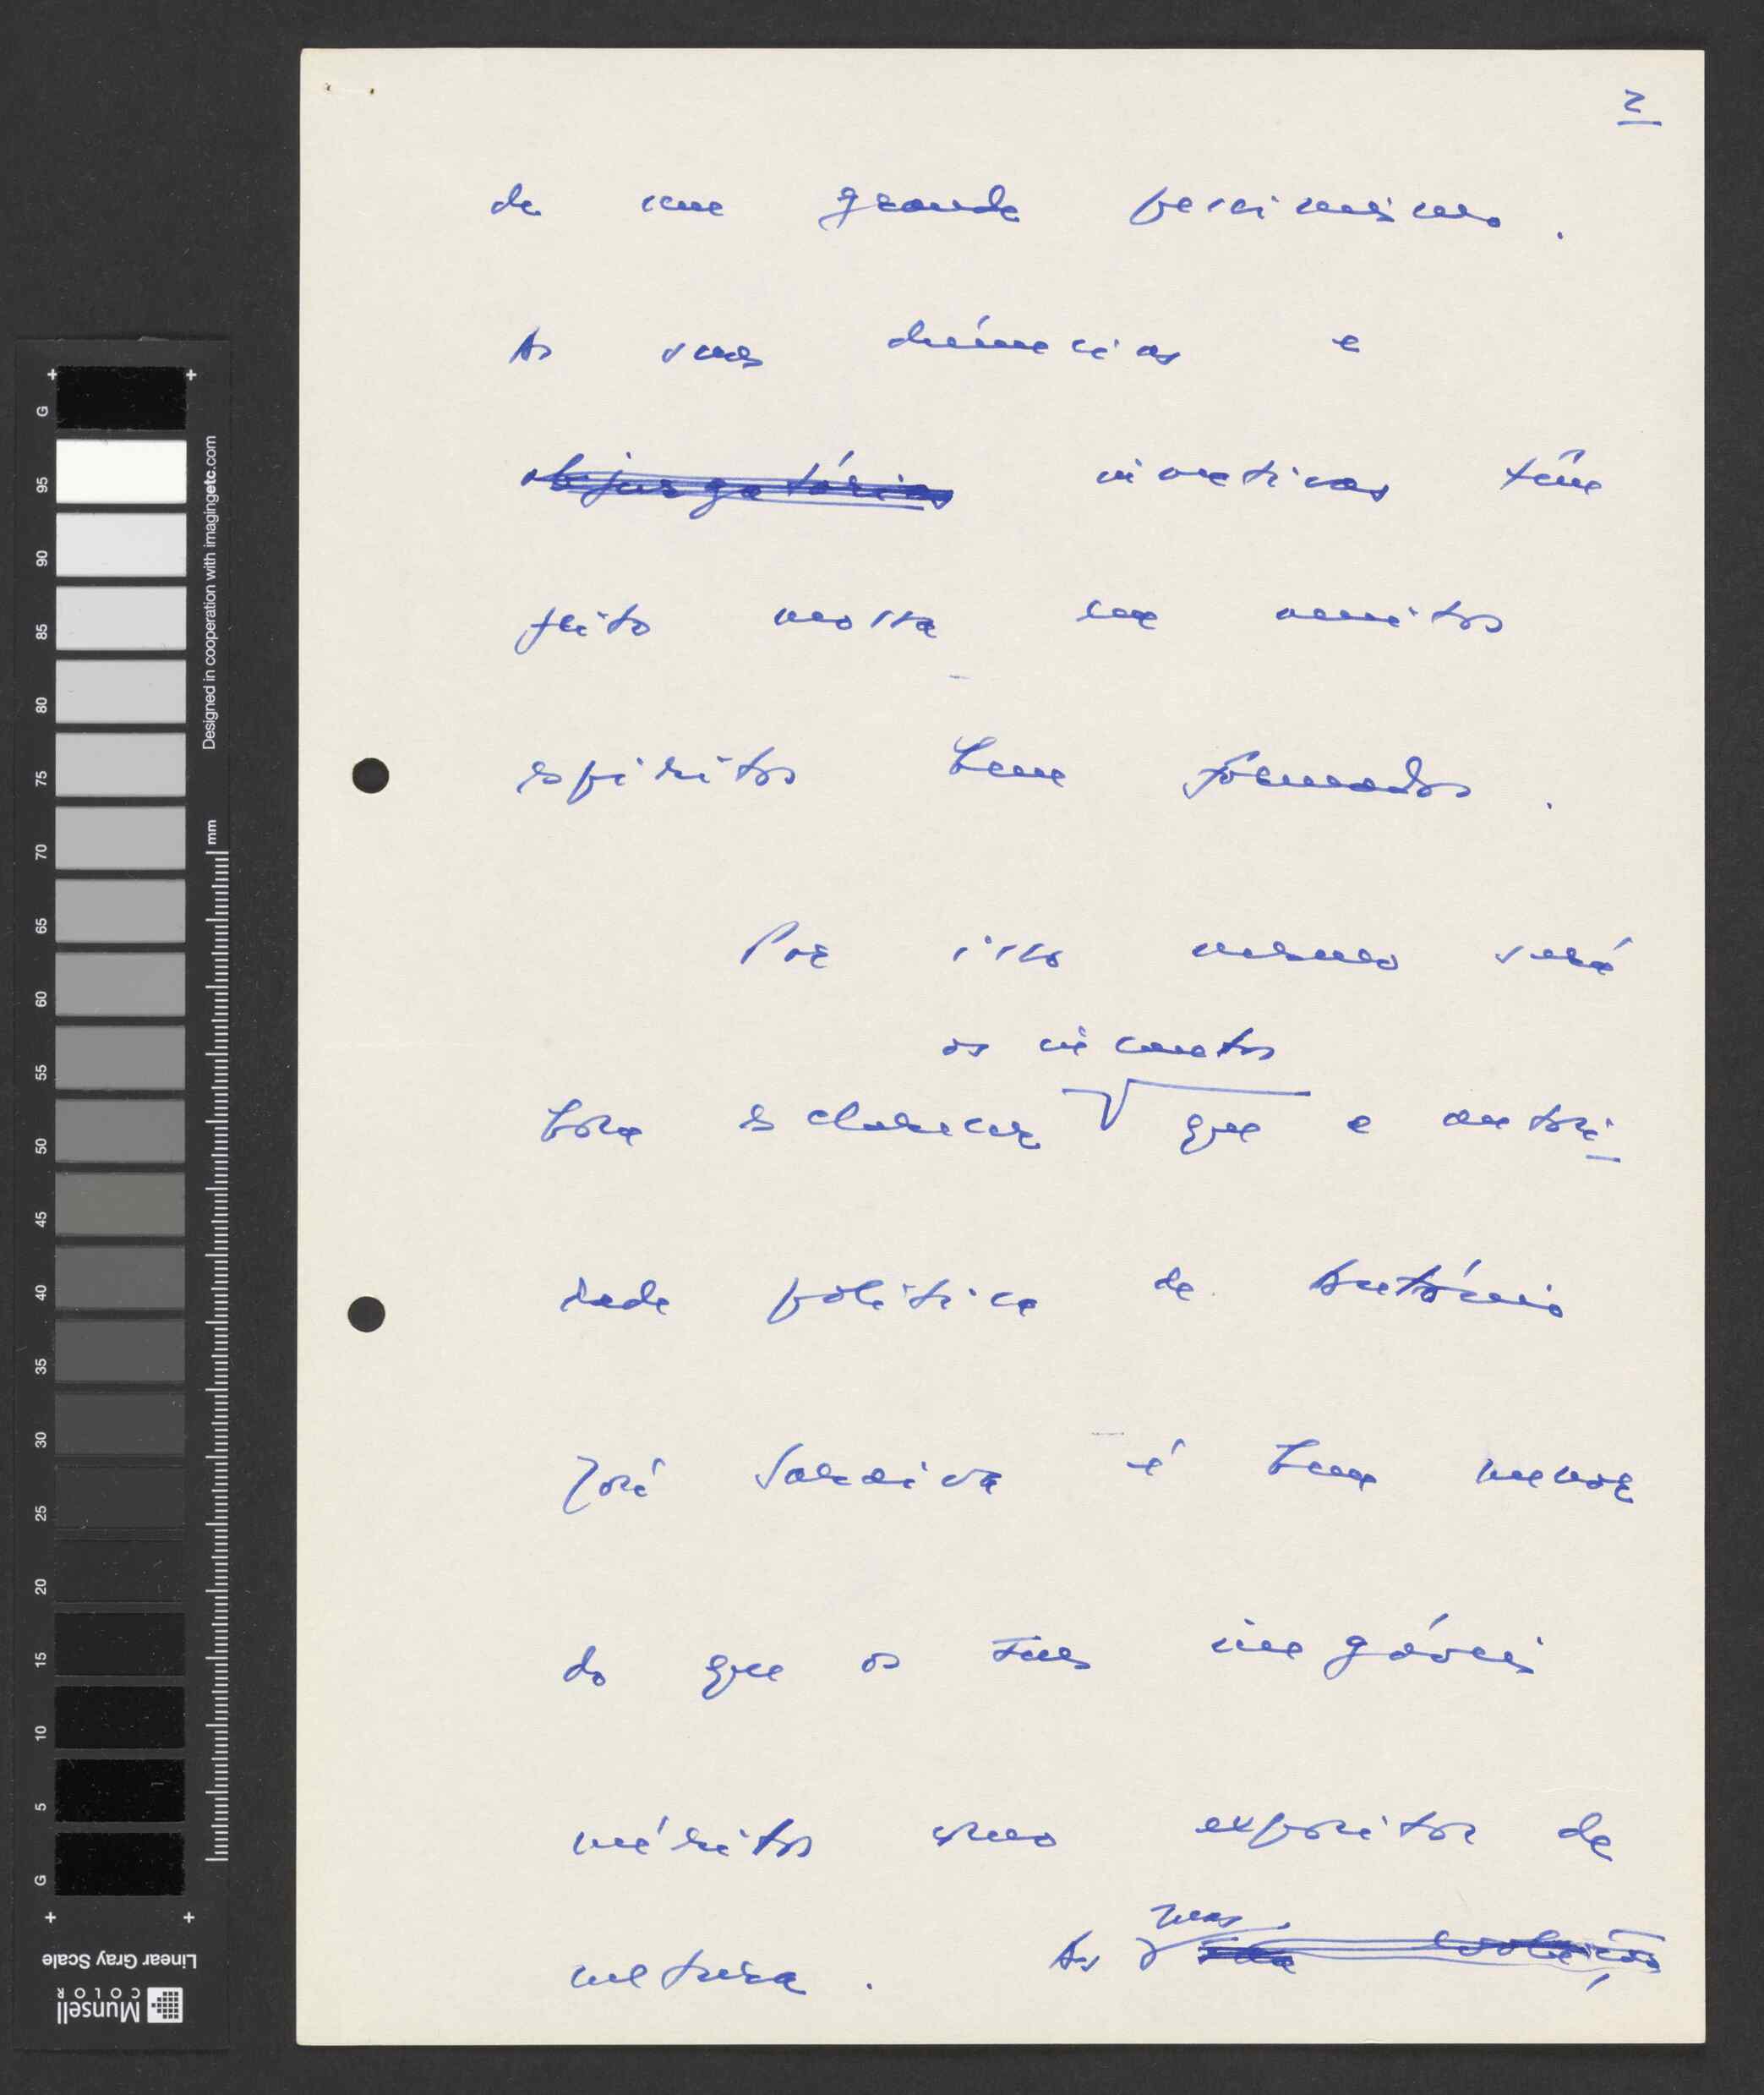 2
de um grande pessimismo.
As suas denúncias e
objurgatórias invectivas têm
feito mossa em muitos
espíritos bem formados.
Por isso mesmo será
os incautos
bom esclarecer que a autori-
dade política de António
José Saraiva é bem menor
do que os seus inegáveis
méritos como expositor de
cultura. As
suas
G 95 90 85 80 75 70 65 60 55 50 45 40 35 30 25 20 15 10 5 G
Designed in cooperation with imagingetc.com
mm
Linear Gray Scale
Munsell
COLOR